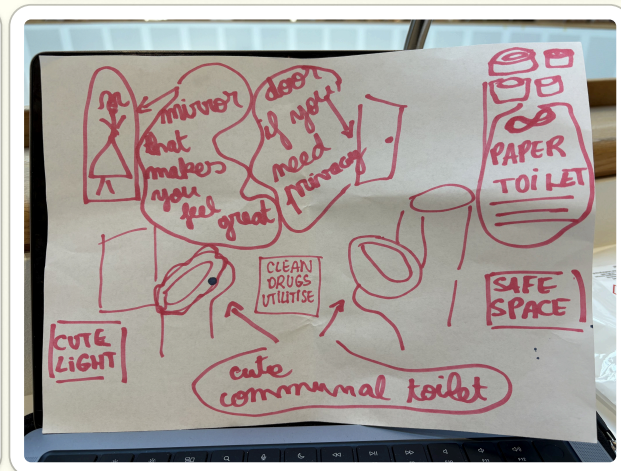 mirror
that
makes
you
feel
great
door
if you
need
privacy
∞
PAPER
TOILET
CLEAN
DRUGS
UTILITISE
SAFE
SPACE
CUTE
LIGHT
cute
communal toilet